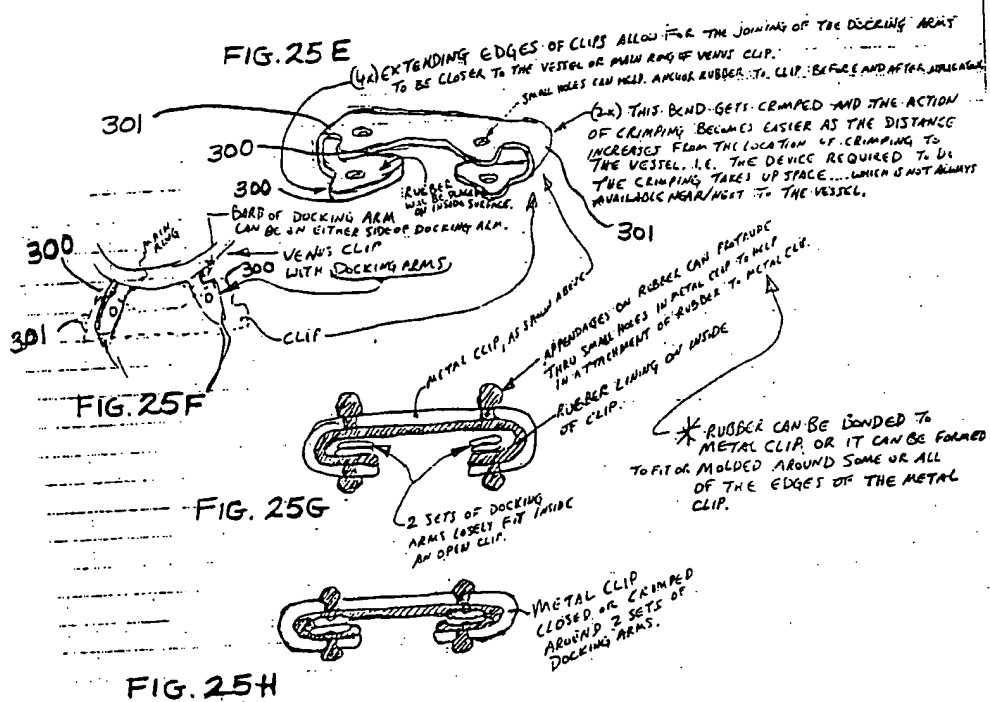 FIG. 25E
(4x) EXTENDING EDGES OF CLIPS ALLOW FOR THE JOINING OF THE DOCKING ARMS
TO BE CLOSER TO THE VESSEL OR MAIN RING OF VENUS CLIP.
SMALL HOLES CAN HELP ANCHOR RUBBER TO CLIP BEFORE AND AFTER APPLICATION
(2x) THIS BEND GETS CRIMPED AND THE ACTION
OF CRIMPING BECOMES EASIER AS THE DISTANCE
INCREASES FROM THE LOCATION OF CRIMPING TO
THE VESSEL. I.E. THE DEVICE REQUIRED TO DO
THE CRIMPING TAKES UP SPACE....WHICH IS NOT ALWAYS
AVAILABLE NEAR/NEXT TO THE VESSEL.
301
300
300
RUBBER
WILL BE PLACED
ON INSIDE SURFACE.
301
BARB OF DOCKING ARM
CAN BE ON EITHER SIDE OF DOCKING ARM.
MAIN
RING
300
VENUS CLIP
300 WITH DOCKING ARMS
301
CLIP
FIG. 25F
METAL CLIP, AS SHOWN ABOVE
APPENDAGES ON RUBBER CAN PROTRUDE
THRU SMALL HOLES IN METAL CLIP TO HELP
IN ATTACHMENT OF RUBBER TO METAL CLIP.
RUBBER LINING ON INSIDE
OF CLIP.
* RUBBER CAN BE BONDED TO
METAL CLIP OR IT CAN BE FORMED
TO FIT OR MOLDED AROUND SOME OR ALL
OF THE EDGES OF THE METAL
CLIP.
FIG. 25G
2 SETS OF DOCKING
ARMS LOSELY FIT INSIDE
AN OPEN CLIP.
METAL CLIP
CLOSED OR CRIMPED
AROUND 2 SETS OF
DOCKING ARMS.
FIG. 25H